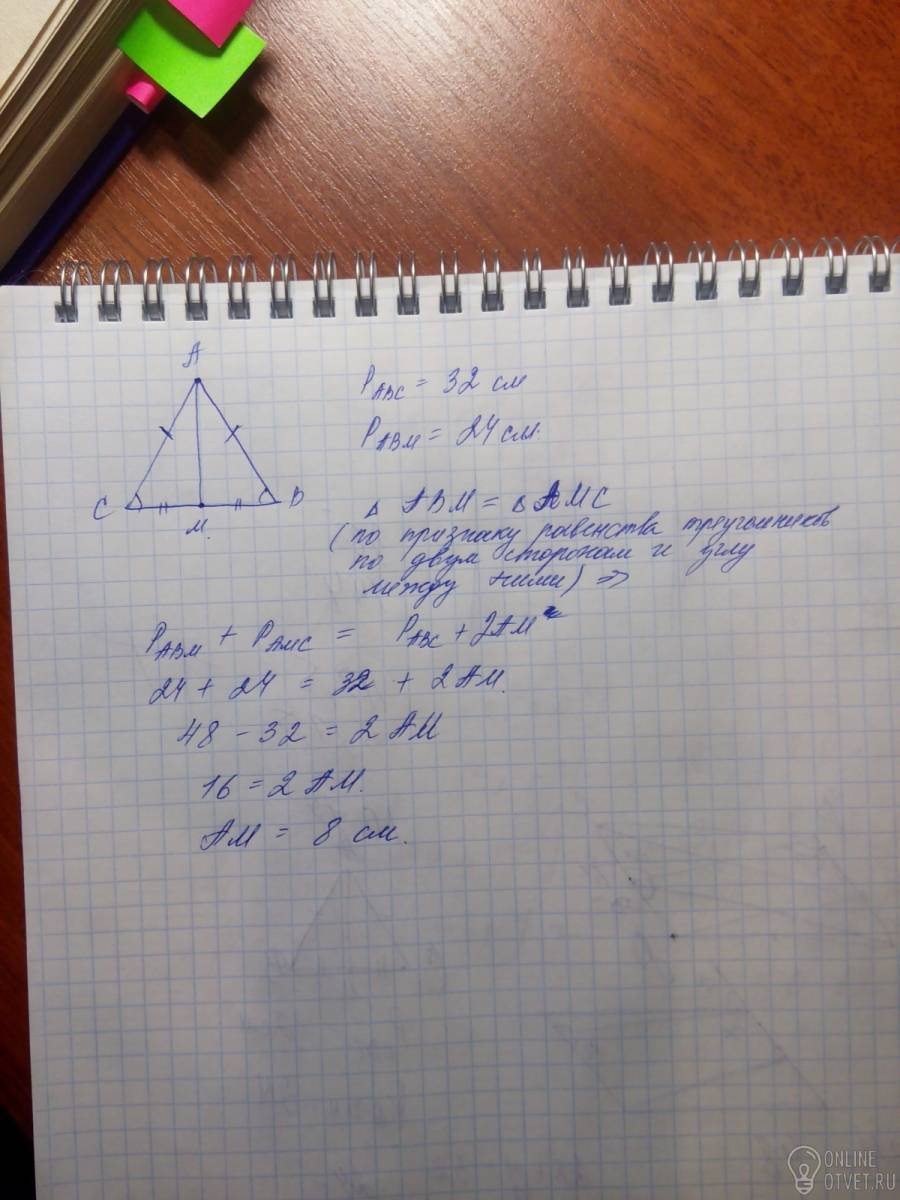 A
C
B
M.
P_ABC = 32 см
P_ABM = 24 см.
△ ABM = △ AMC
(по признаку равенства треугольников
по двум сторонам и углу
между ними) ⇒
P_ABM + P_AMC = P_ABC + 2AM
24 + 24 = 32 + 2AM.
48 - 32 = 2 AM
16 = 2 AM.
AM = 8 см.
ONLINE
OTVET.RU